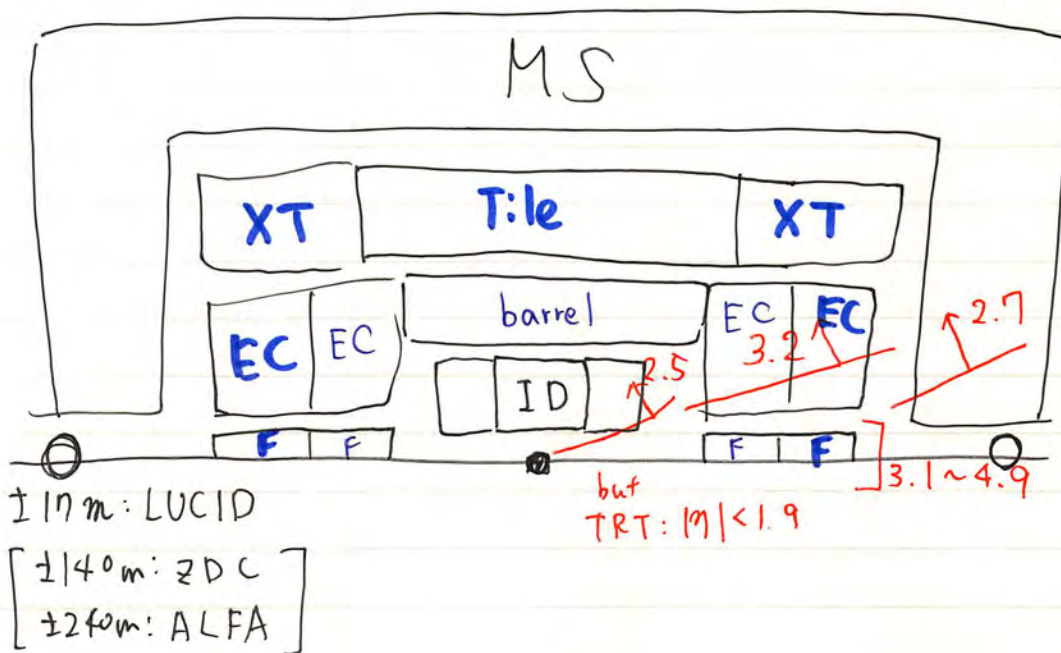 MS
XT Tile XT
EC EC barrel EC EC
2.7
3.2
2.5
ID
F F F F
3.1~4.9
but
TRT: |η|<1.9
±17m: LUCID
±140m: ZDC
±240m: ALFA